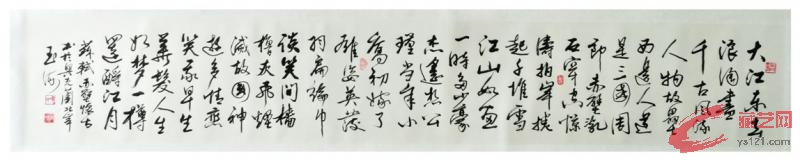 大江东去
浪淘尽
千古风流
人物故垒
西边人道
是三国周
郎赤壁乱
石穿空惊
涛拍岸卷
起千堆雪
江山如画
一时多少豪
杰遥想公
瑾当年小
乔初嫁了
雄姿英发
羽扇纶巾
谈笑间樯
橹灰飞烟
灭故国神
游多情应
笑我早生
华发人生
如梦一樽
还酹江月
苏轼赤壁怀古
玉海
藏艺网